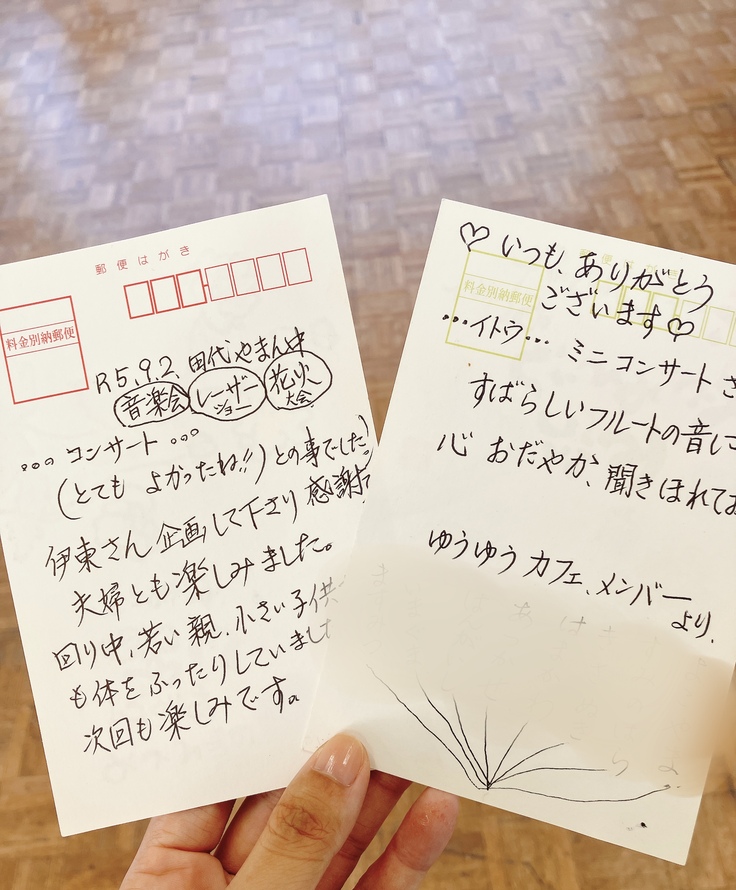 郵便はがき
料金別納郵便
R5.9.2. 田代やまん中
音楽会 レーザーショー 花火大会
…コンサート…
(とても よかったね!!)との事でした
伊東さん企画して下さり 感謝
夫婦とも楽しみました。
回り中、若い親、小さい子供
も体をふったりしていました
次回も楽しみです。
♡いつも、ありがとう
ございます♡
料金別納郵便
…イトウ… ミニコンサート
すばらしいフルートの音に
心 おだやか、聞きほれてお
ゆうゆうカフェ、メンバー
より、